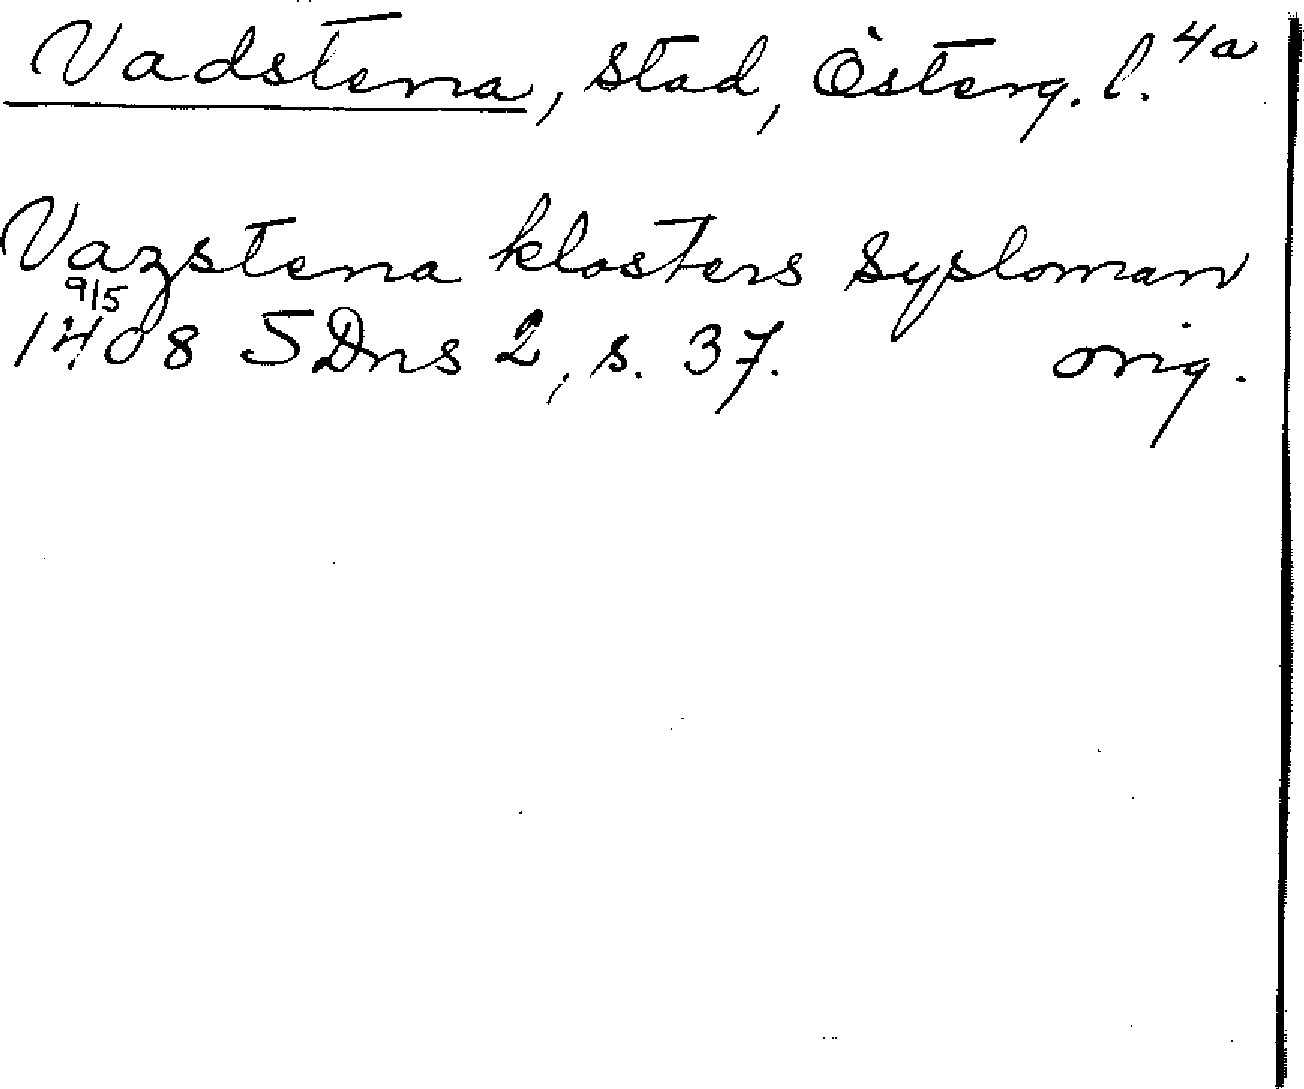 Vadstena, stad, Österg. l. 4a
Vazstena klosters sysloman
9/5
1408 SDns 2, s. 37. orig.